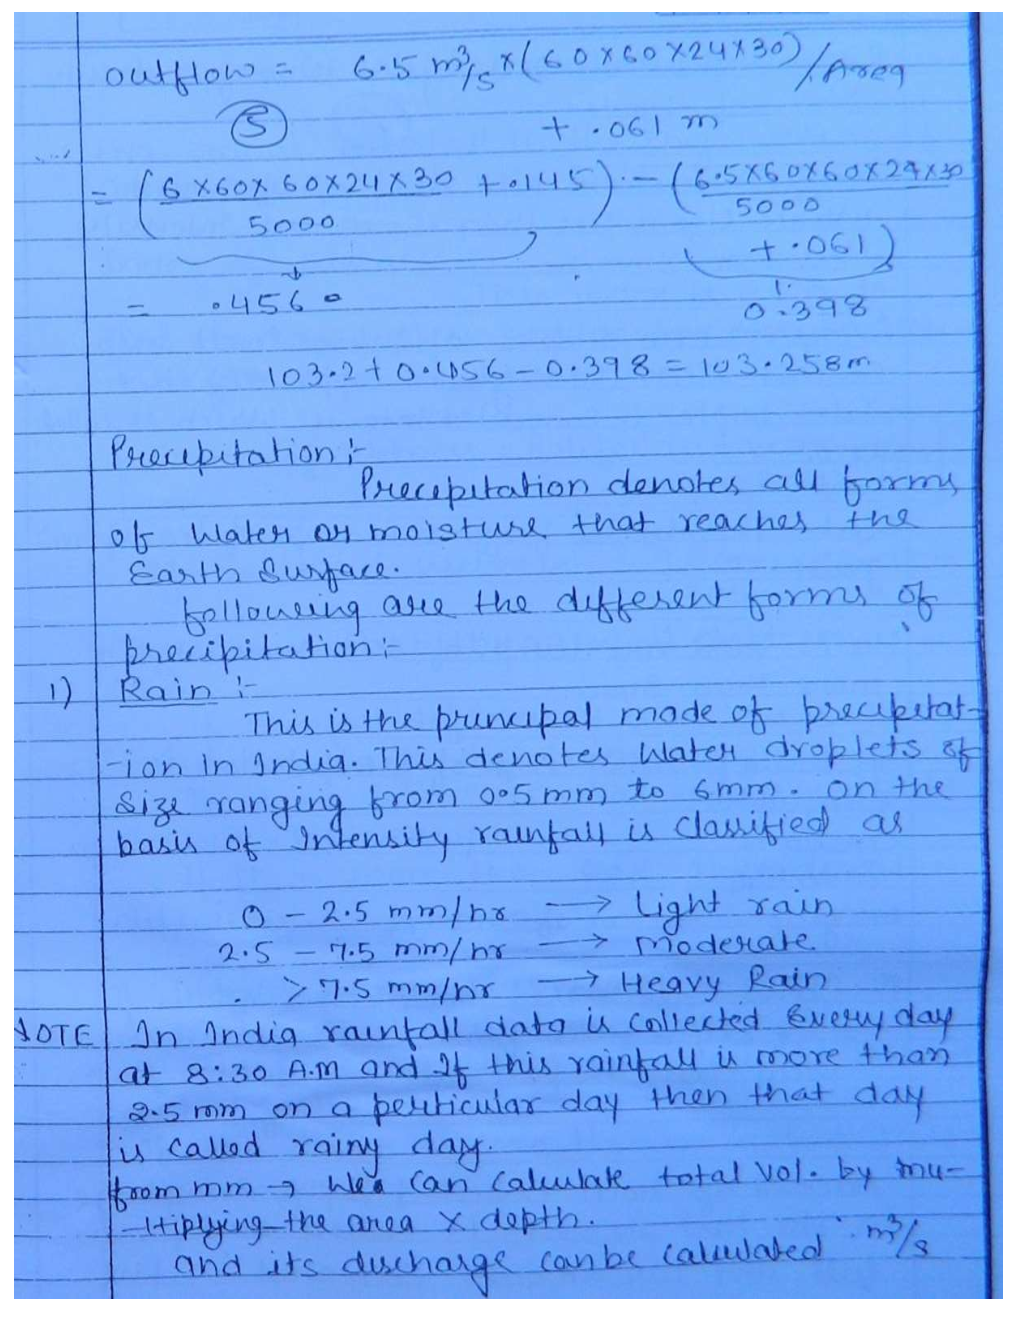 outflow = 6.5 m³/s × (60×60×24×30) / Area
(S) + .061 m
= (6×60×60×24×30 / 5000 + .145) - (6.5×60×60×24×30 / 5000
+ .061)
= .4560 0.398
103.2 + 0.456 - 0.398 = 103.258m
Precipitation :-
Precipitation denotes all forms
of Water or moisture that reaches the
Earth Surface.
following are the different forms of
precipitation :-
1) Rain :-
This is the principal mode of precipitat-
-ion in India. This denotes Water droplets of
size ranging from 0.5mm to 6mm. on the
basis of Intensity rainfall is classified as
0 - 2.5 mm/hr → Light rain
2.5 - 7.5 mm/hr → moderate
> 7.5 mm/hr → Heavy Rain
NOTE In India rainfall data is collected Every day
at 8:30 A.M and If this rainfall is more than
2.5 mm on a perticular day then that day
is called rainy day.
from mm → We can calculate total vol. by mu-
-ltiplying the area × depth.
and its discharge can be calculated m³/s